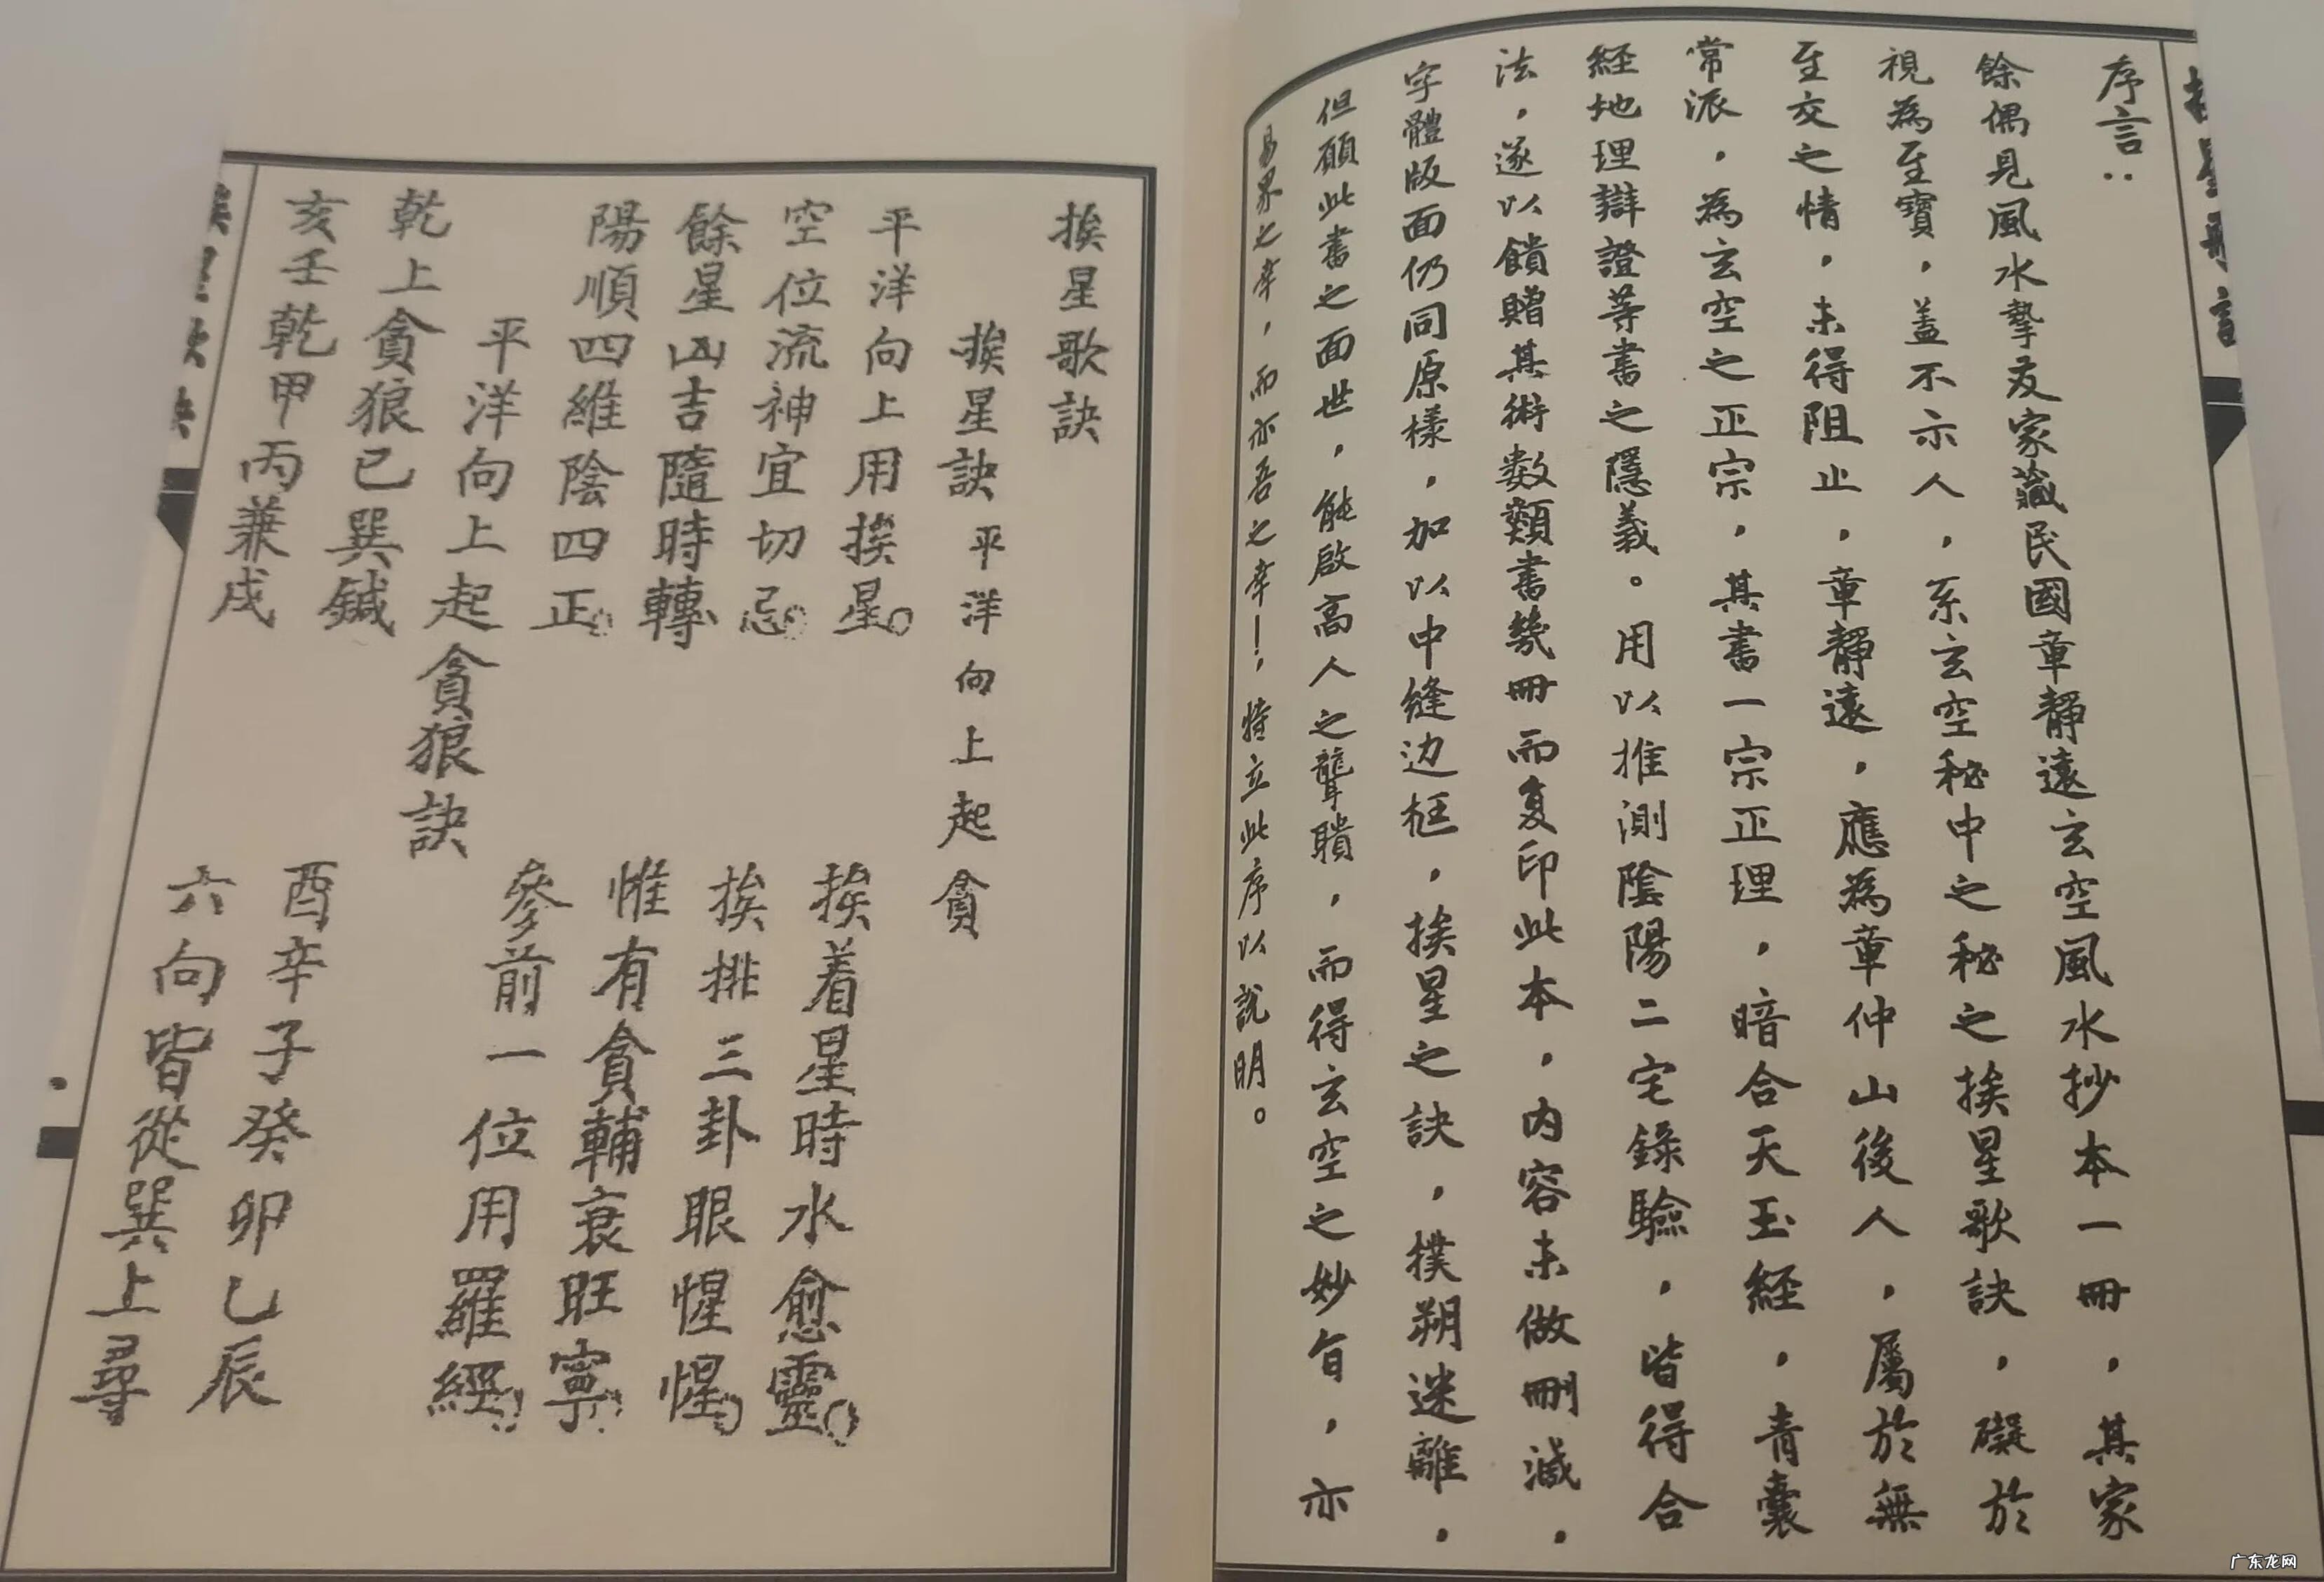 序言：
餘偶見風水摯友家藏民國章靜遠玄空風水抄本一冊，其家
視為至寶，盖不示人，系玄空秘中之秘之挨星歌訣，礙於
至交之情，未得阻止，章靜遠，應為章仲山後人，屬於無
常派，為玄空之正宗，其書一宗正理，暗合天玉經，青囊
経地理辯證等書之隱義。用以推測陰陽二宅錄驗，皆得合
法，遂以饋贈其術数類書幾冊而复印此本，内容未做刪減，
字體版面仍同原樣，加以中縫边框，挨星之訣，撲朔迷離，
但願此書之面世，能啟高人之聾聵，而得玄空之妙旨，亦
易界之幸，而亦吾之幸！，特立此序以說明。
挨星歌訣
挨星訣 平洋向上起貪
平洋向上用挨星 挨着星時水愈靈
空位流神宜切忌 挨排三卦眼惺惺
餘星凶吉隨時轉 惟有貪輔衰旺寧
陽順四維陰四正 參前一位用羅經
平洋向上起貪狼訣
乾上貪狼巳巽鍼 酉辛子癸卯乙辰
亥壬乾甲丙兼戌 六向皆從巽上尋
广东龙网